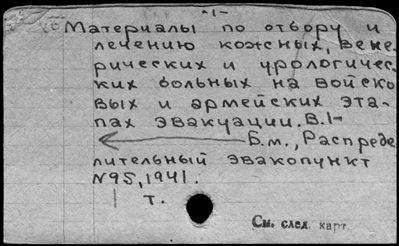 -1-
Материалы по отбору и
лечению кожных, вене-
рических и урологичес-
ких больных на войско
вых и армейских эта-
пах эвакуации. В.1-
Б.м., Распреде
лительный эвакопункт
N95, 1941.
т.
См. след. карт.